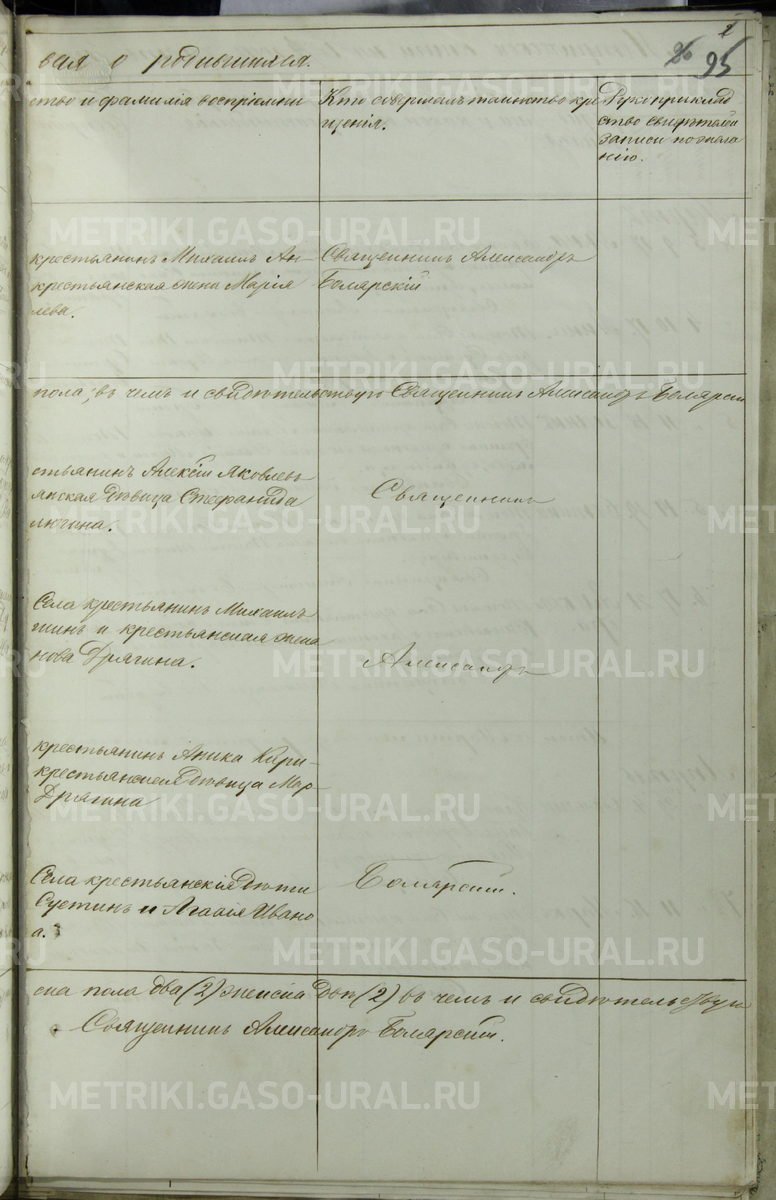 2
95
вая о родившихся.
ство и фамилія воспріемни
Кто совершалъ таинство кре
щенія.
Рукоприклад
ство свидѣтелей
записи по жела
нію.
METRIKI.GASO-URAL.RU
крестьянинъ Михаилъ Ан-
крестьянская жена Марія
лева.
Священникъ Александръ
Боярскій
пола, въ чемъ и свидѣтельствую Священникъ Александръ Боярскій
стьянинъ Алексѣй Яковлевъ
янская дѣвица Стефанида
Священникъ
METRIKI.GASO-URAL.RU
Села крестьянинъ Михаилъ
шинъ и крестьянская жена
нова Дрягина.
Александръ
METRIKI.GASO-URAL.RU
крестьянинъ Аника Кири-
крестьянская дѣвица Мар
Дрягина
METRIKI.GASO-URAL.RU
Села крестьянскія дѣти
Сустинъ и Агаѳія Ивано
а.
Боярскій.
METRIKI.GASO-URAL.RU
ска пола два (2) женска двѣ (2) въ чемъ и свидѣтельствую
Священникъ Александръ Боярскій.
METRIKI.GASO-URAL.RU